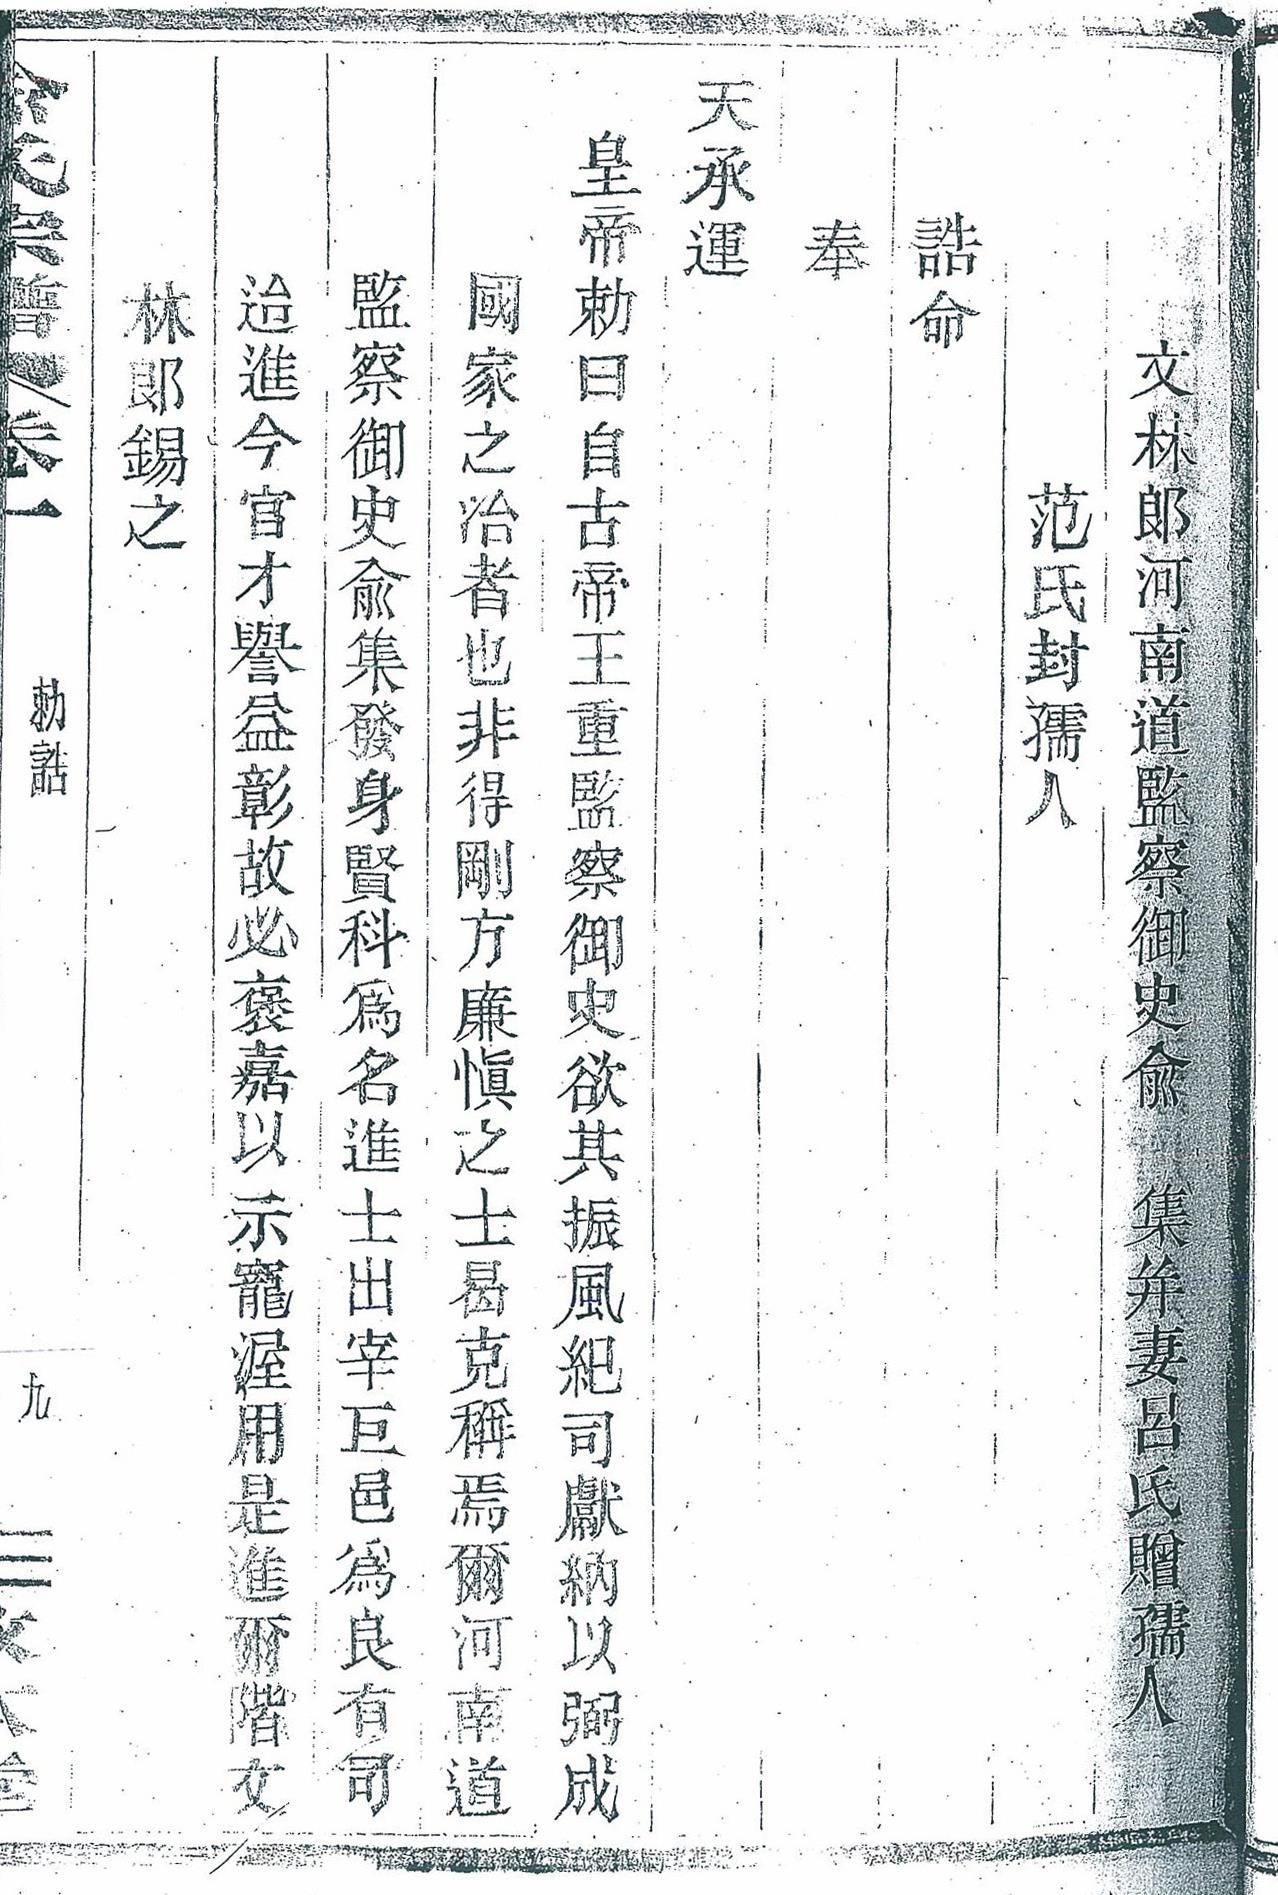 文林郎河南道監察御史俞　集并妻呂氏贈孺人
范氏封孺人
誥命
奉
天承運
皇帝勅曰自古帝王重監察御史欲其振風紀司獻納以弼成
國家之治者也非得剛方廉慎之士曷克稱焉爾河南道
監察御史俞集發身賢科為名進士出宰巨邑為良有司
迨進今官才譽益彰故必褒嘉以示寵渥用是進爾階文
林郎錫之
氏宗譜　卷一　勅誥　九